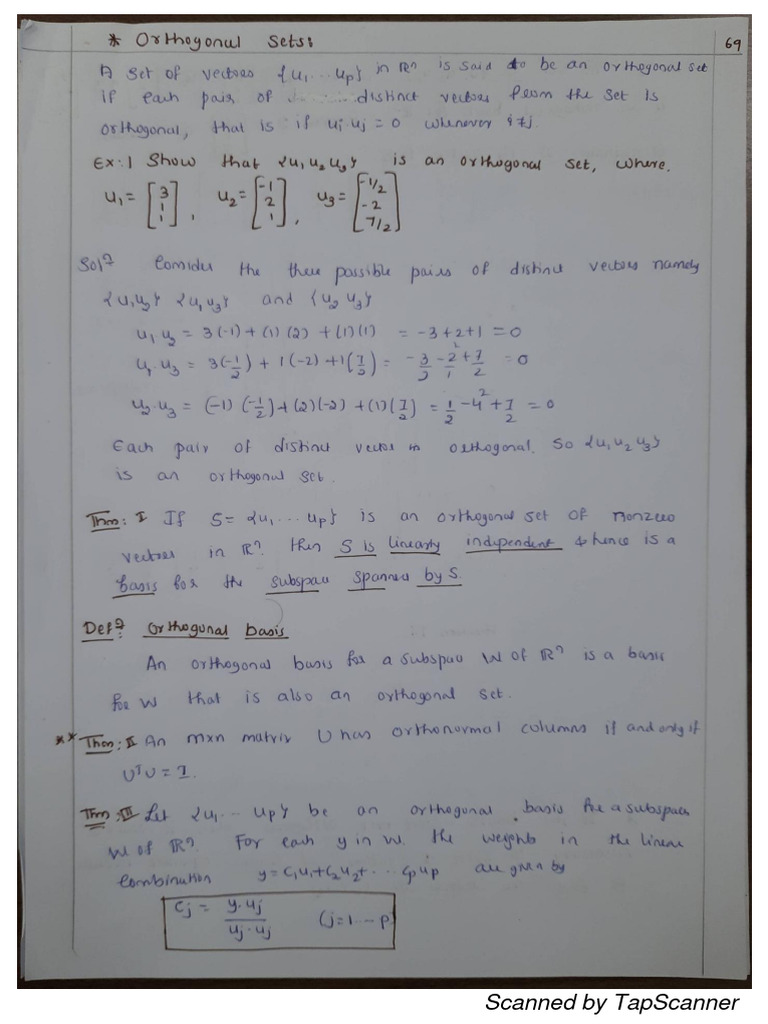 * Orthogonal Sets:
69
A set of vectors {u1 ... up} in Rⁿ is said to be an orthogonal set
if each pair of distinct vectors from the set is
orthogonal, that is if ui·uj = 0 whenever i≠j.
Ex:1 Show that {u1 u2 u3} is an orthogonal set, where.
u1 = [3 1 1], u2 = [-1 2 1], u3 = [-1/2 -2 7/2]
Solⁿ Consider the there possible pairs of distinct vectors namely
{u1u2} {u1u3} and {u2 u3}
u1 u2 = 3(-1) + (1)(2) + (1)(1) = -3+2+1 = 0
u1·u3 = 3(-1/2) + 1(-2) + 1(7/2) = -3/2 - 2/1 + 7/2 = 0
u2·u3 = (-1)(-1/2) + (2)(-2) + (1)(7/2) = 1/2 - 4 + 7/2 = 0
Each pair of distinct vector is orthogonal. So {u1 u2 u3}
is an orthogonal set.
Thm: I If S = {u1 ... up} is an orthogonal set of nonzero
vectors in Rⁿ. then S is linearly independent & hence is a
basis for the subspace spanned by S.
Defⁿ: Orthogonal basis
An orthogonal basis for a subspace W of Rⁿ is a basis
for W that is also an orthogonal set.
** Thm: II An mxn matrix U has orthonormal columns if and only if
UᵀU = I.
Thm: III Let {u1 ... up} be an orthogonal basis for a subspace
W of Rⁿ. For each y in W. the weights in the linear
combination y = c1u1+c2u2+ ... cpup are given by
cj = y·uj / uj·uj (j=1 --- p)
Scanned by TapScanner